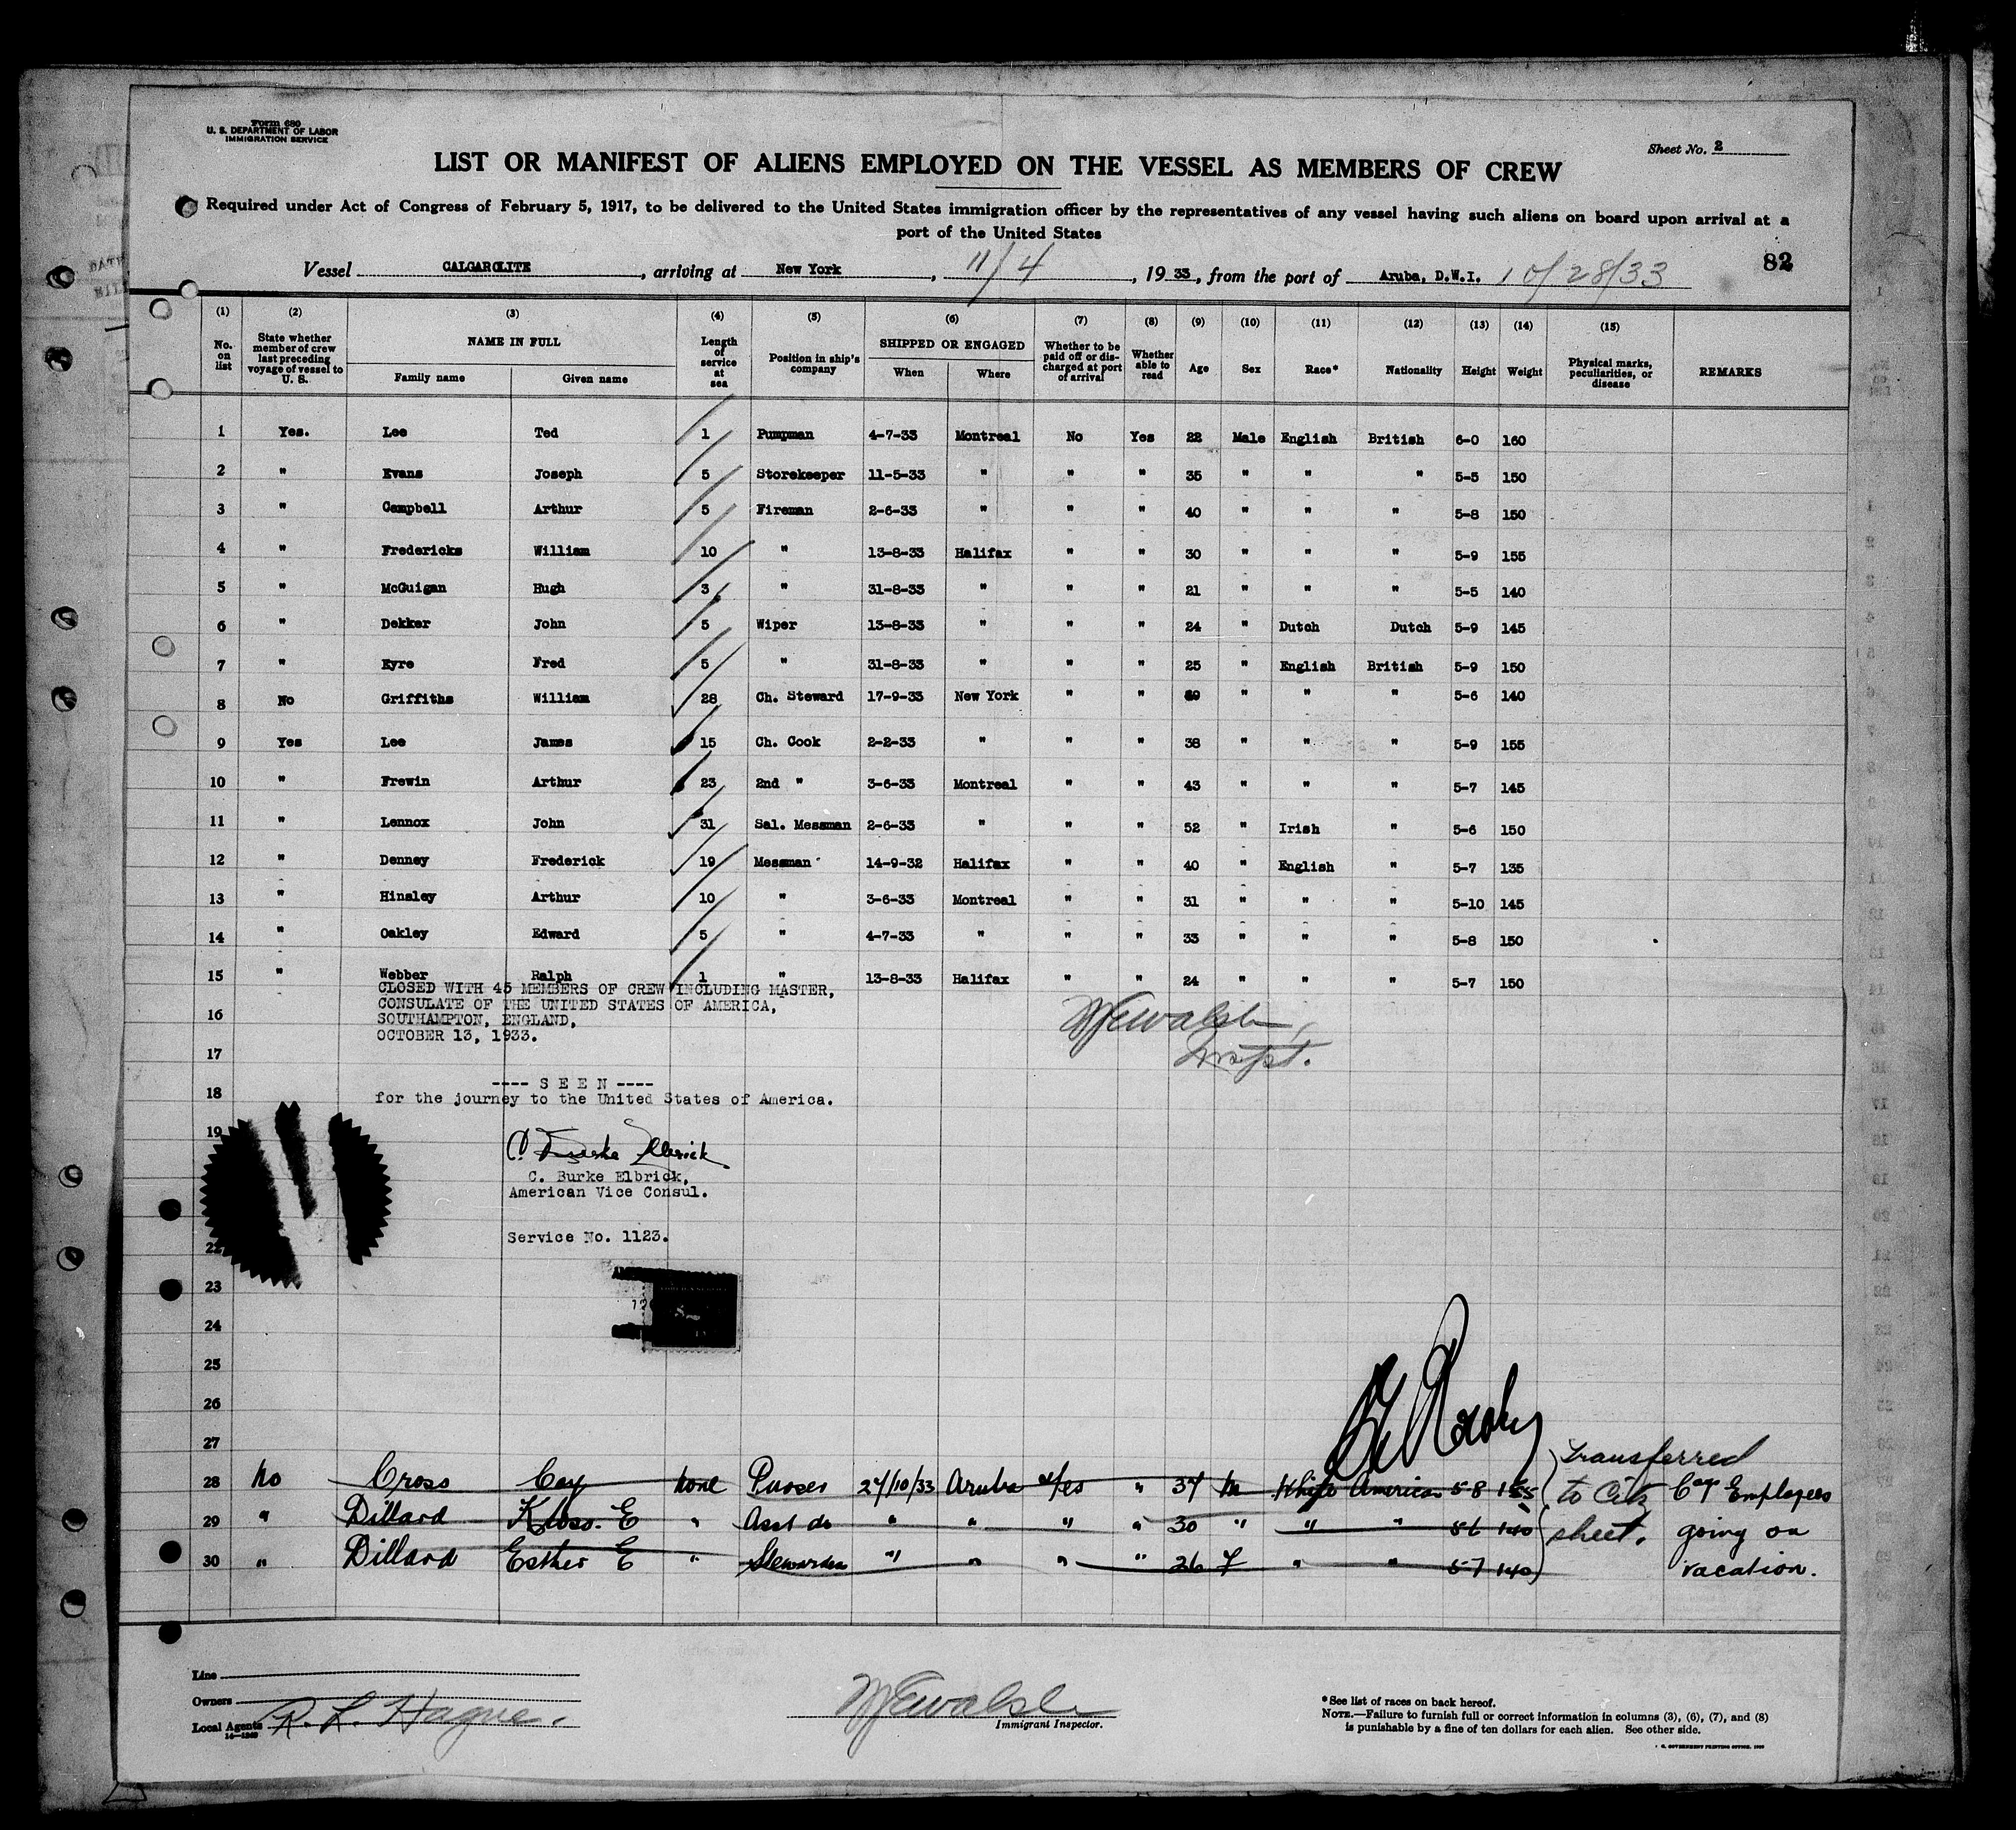 Form 680
U. S. DEPARTMENT OF LABOR
IMMIGRATION SERVICE
Sheet No. 2
LIST OR MANIFEST OF ALIENS EMPLOYED ON THE VESSEL AS MEMBERS OF CREW
Required under Act of Congress of February 5, 1917, to be delivered to the United States immigration officer by the representatives of any vessel having such aliens on board upon arrival at a
port of the United States
82
Vessel CALGAROLITE, arriving at New York, 11/4, 1933, from the port of Aruba, D.W.I. 10/28/33
(1) (2) (3) (4) (5) (6) (7) (8) (9) (10) (11) (12) (13) (14) (15)
No. on list State whether member of crew last preceding voyage of vessel to U. S. NAME IN FULL Family name Given name Length of service at sea Position in ship's company SHIPPED OR ENGAGED When Where Whether to be paid off or discharged at port of arrival Whether able to read Age Sex Race* Nationality Height Weight Physical marks, peculiarities, or disease REMARKS
1 Yes. Lee Ted 1 Pumpman 4-7-33 Montreal No Yes 22 Male English British 6-0 160
2 " Evans Joseph 5 Storekeeper 11-5-33 " " " 35 " " " 5-5 150
3 " Campbell Arthur 5 Fireman 2-6-33 " " " 40 " " " 5-8 150
4 " Fredericks William 10 " 13-8-33 Halifax " " 30 " " " 5-9 155
5 " McGuigan Hugh 3 " 31-8-33 " " " 21 " " " 5-5 140
6 " Dekker John 5 Wiper 13-8-33 " " " 24 " Dutch Dutch 5-9 145
7 " Eyre Fred 5 " 31-8-33 " " " 25 " English British 5-9 150
8 No Griffiths William 28 Ch. Steward 17-9-33 New York " " " " " 5-6 140
9 Yes Lee James 15 Ch. Cook 2-2-33 " " " 38 " " " 5-9 155
10 " Frewin Arthur 23 2nd " 3-6-33 Montreal " " 43 " " " 5-7 145
11 " Lennox John 31 Sal. Messman 2-6-33 " " " 52 " Irish " 5-6 150
12 " Denney Frederick 19 Messman 14-9-32 Halifax " " 40 " English " 5-7 135
13 " Hinsley Arthur 10 " 3-6-33 Montreal " " 31 " " " 5-10 145
14 " Oakley Edward 5 " 4-7-33 " " " 33 " " " 5-8 150
15 " Webber Ralph 1 " 13-8-33 Halifax " " 24 " " " 5-7 150
CLOSED WITH 45 MEMBERS OF CREW INCLUDING MASTER,
CONSULATE OF THE UNITED STATES OF AMERICA,
16 SOUTHAMPTON, ENGLAND,
OCTOBER 13, 1933.
W E Walsh
Inspt.
17
---- S E E N ----
18 for the journey to the United States of America.
19
C. Burke Elbrick
C. Burke Elbrick,
American Vice Consul.
Service No. 1123.
22
23
24
25
26
27
28 No Cross Coy None Purser 27/10/33 Aruba Yes " 37 M White American 5-8 155
29 " Dillard E " Asst do " " " " 30 " " " 5-6 140
30 " Dillard Esther E " Stewardess " " " " 26 F " " 5-7 140
Transferred
to Citz
sheet.
Coy Employees
going on
vacation.
Line
Owners
Local Agents R. L. Hague.
14-1263
W E Walsh
Immigrant Inspector.
*See list of races on back hereof.
NOTE.—Failure to furnish full or correct information in columns (3), (6), (7), and (8)
is punishable by a fine of ten dollars for each alien. See other side.